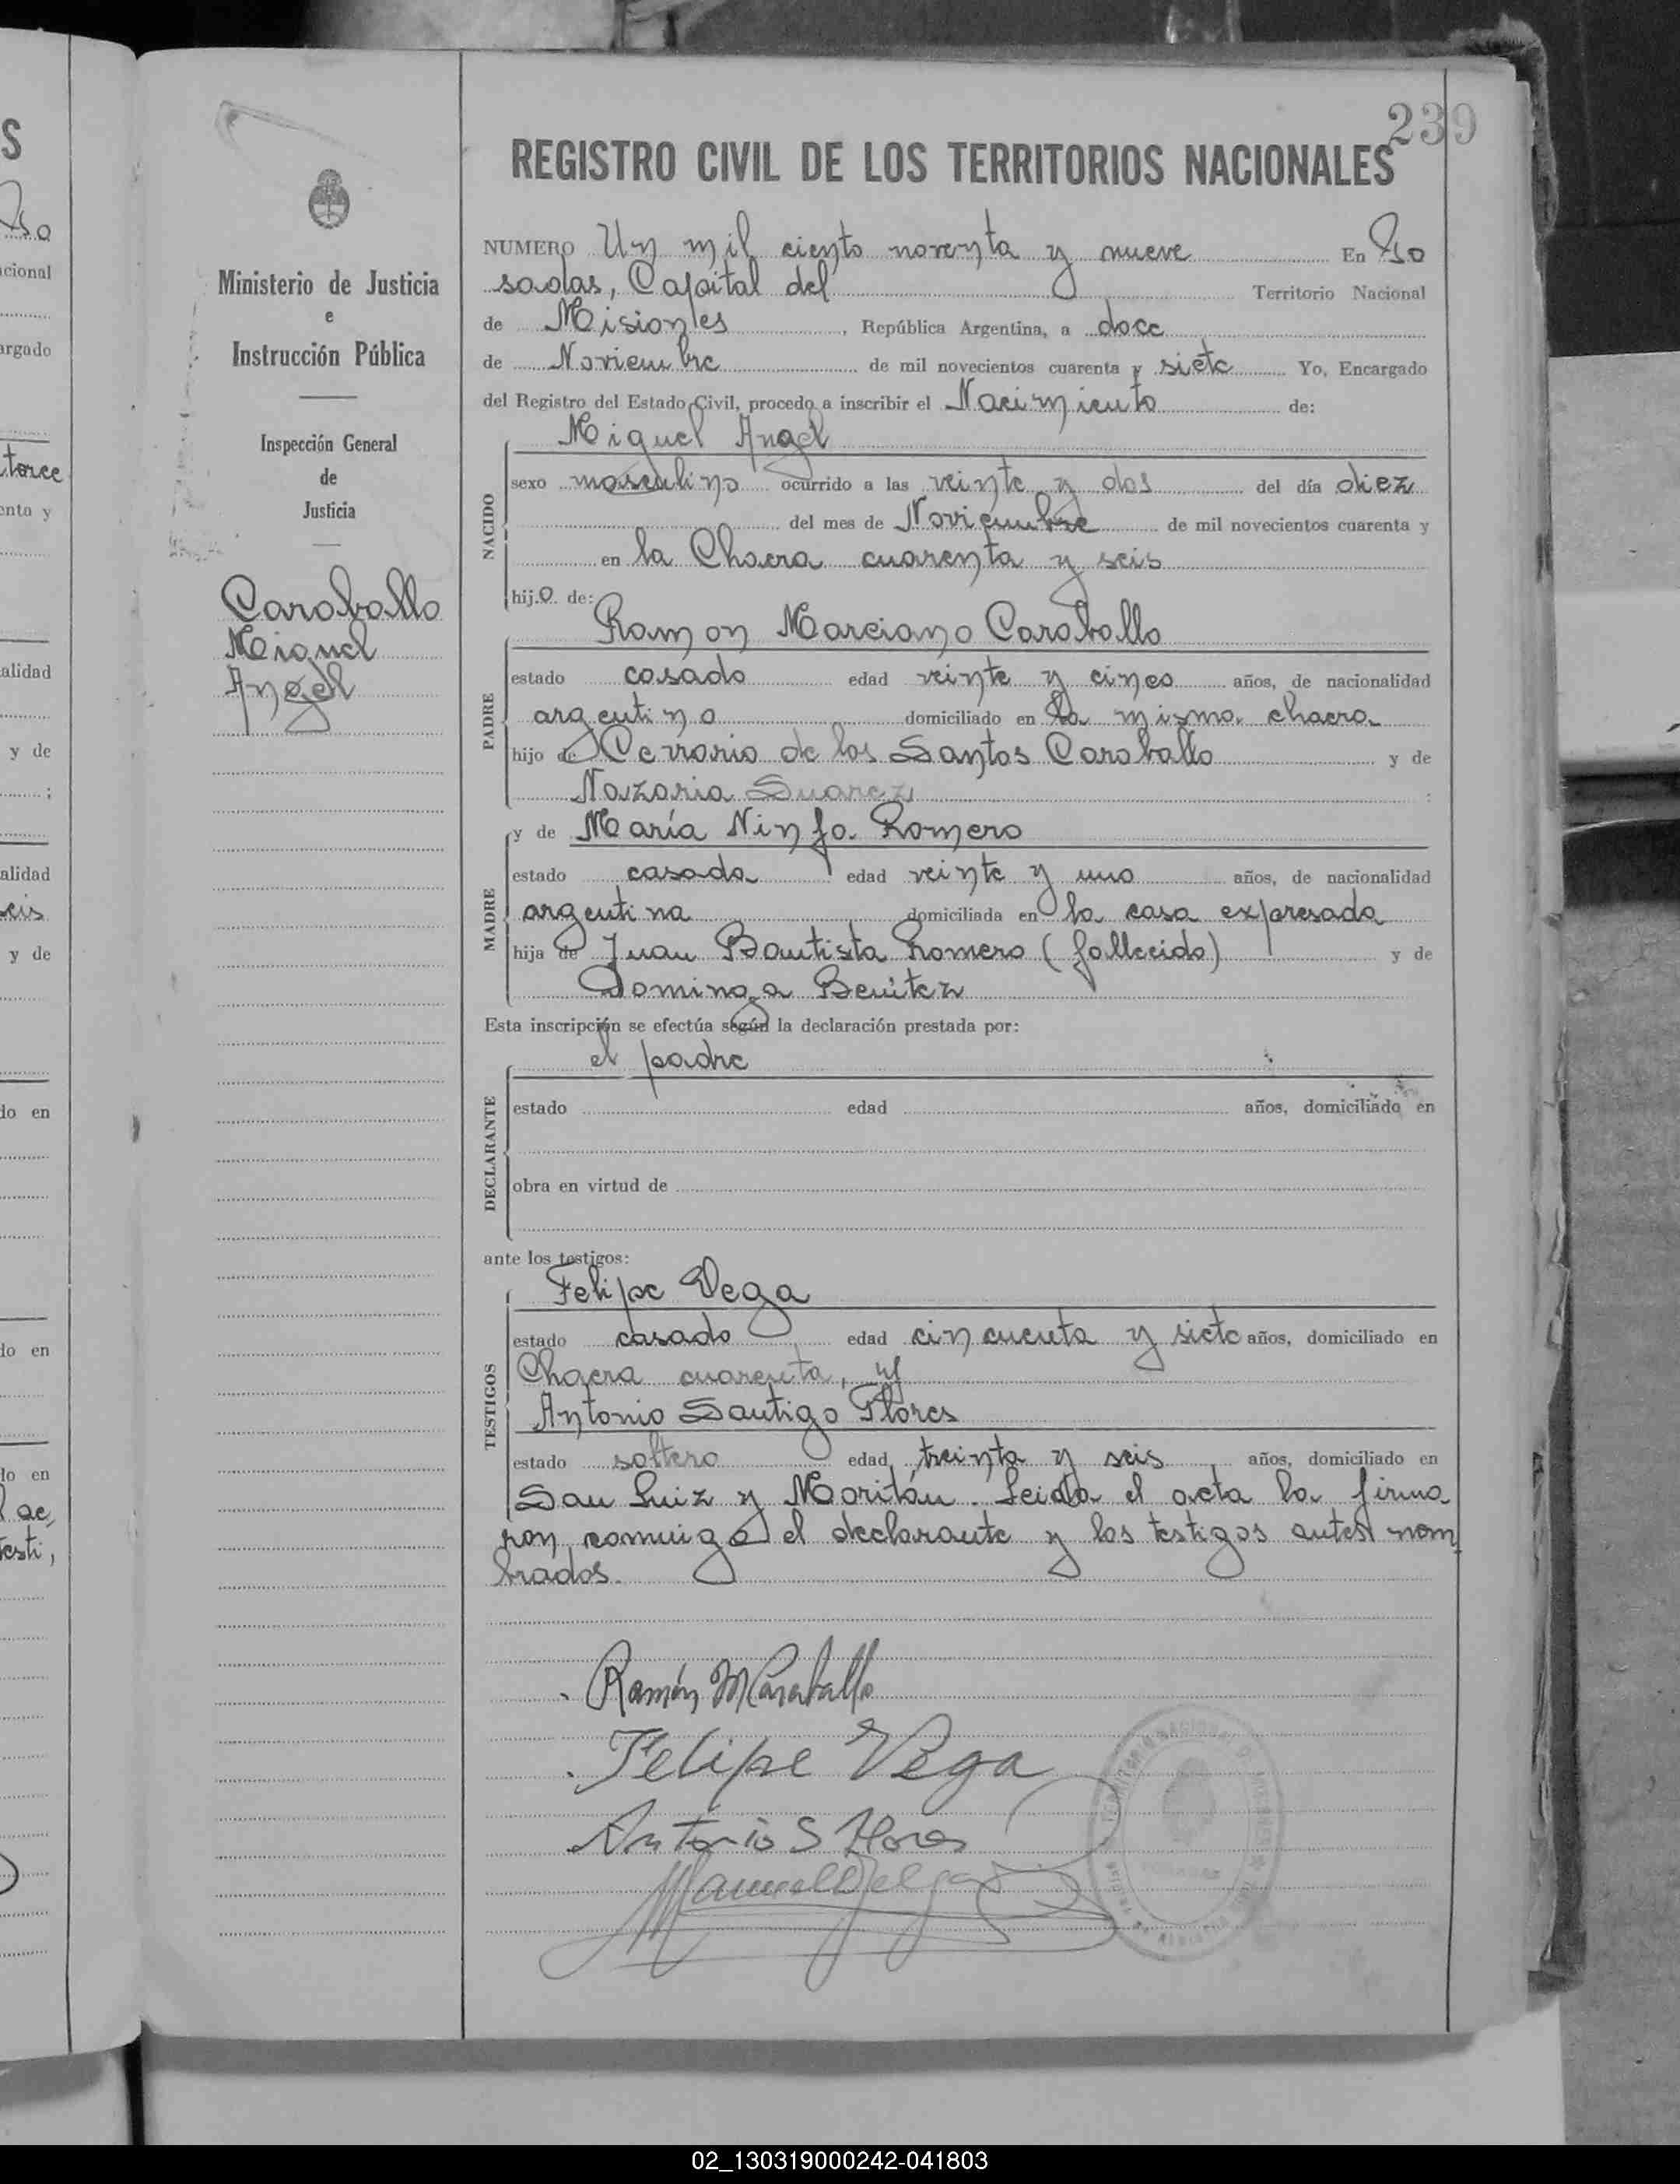 239
REGISTRO CIVIL DE LOS TERRITORIOS NACIONALES
Ministerio de Justicia
e
Instrucción Pública
Inspección General
de
Justicia
Caraballo
Miguel
Angel
NUMERO Un mil ciento noventa y nueve En Po
sadas, Capital del Territorio Nacional
de Misiones, República Argentina, a doce
de Noviembre de mil novecientos cuarenta y siete Yo, Encargado
del Registro del Estado Civil, procedo a inscribir el Nacimiento de:
Miguel Angel
NACIDO
sexo masculino ocurrido a las veinte y dos del día diez
del mes de Noviembre de mil novecientos cuarenta y
en la Chacra cuarenta y seis
hijo de:
Ramon Marciano Caraballo
PADRE
estado casado edad veinte y cinco años, de nacionalidad
argentino domiciliado en la misma chacra
hijo de de los Santos Caraballo y de
Nazaria Suarez :
y de María Ninfa Romero
MADRE
estado casada edad veinte y uno años, de nacionalidad
argentina domiciliada en la casa expresada
hija de Juan Bautista Romero (fallecido) y de
Dominga Benitez
Esta inscripción se efectúa según la declaración prestada por:
el padre
DECLARANTE
estado edad años, domiciliado en
obra en virtud de
ante los testigos:
Felipe Vega
TESTIGOS
estado casado edad cincuenta y siete años, domiciliado en
Chacra cuarenta, y
Antonio Santigo Flores
estado soltero edad treinta y seis años, domiciliado en
San Luiz y Moritán. Leida el acta la firma
ron conmigo el declarante y los testigos antes nom
brados.
Ramón M Caraballo
Felipe Vega
Antonio S Flores
Manuel Delgado
02_130319000242-041803